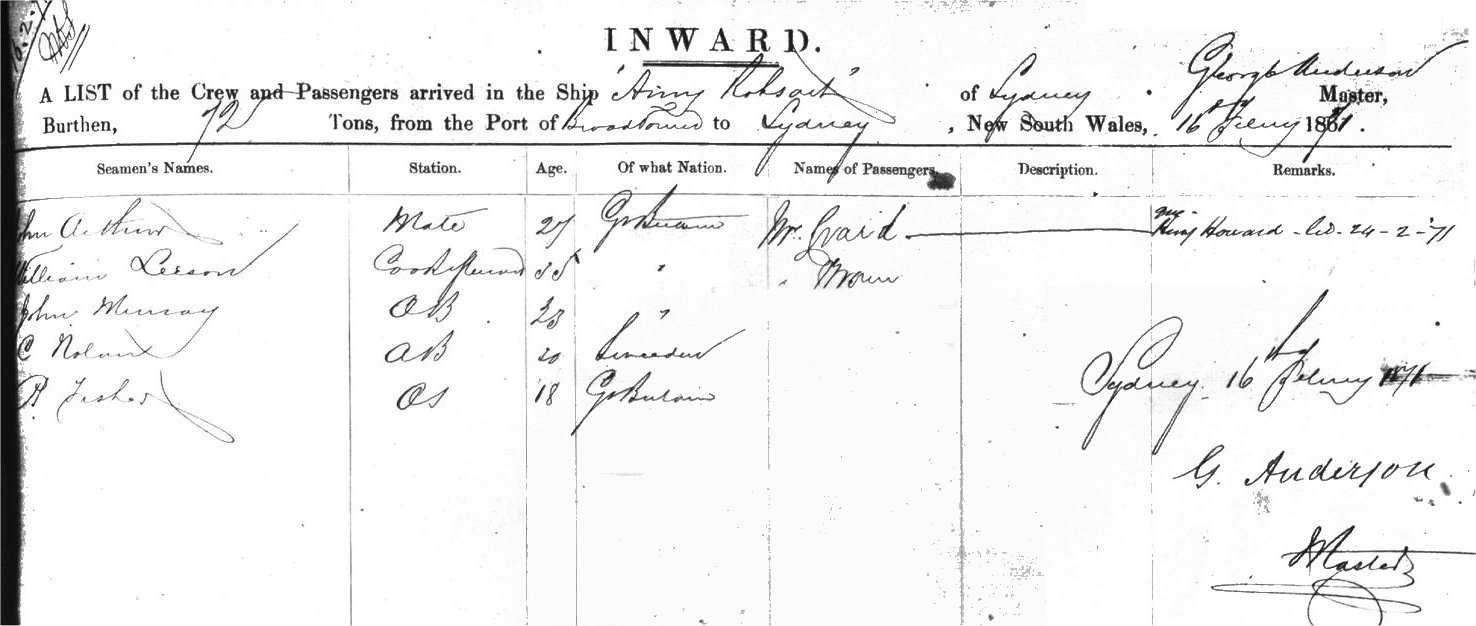 INWARD.
A LIST of the Crew and Passengers arrived in the Ship "Amy Robsart" of Sydney George Anderson Master,
Burthen, 72 Tons, from the Port of to Sydney , New South Wales, 16th Febry 1871.
Seamen's Names. Station. Age. Of what Nation. Names of Passengers. Description. Remarks.
John Arthur Mate 27 Gt Britain Mr. Ward Howard - 24-2-71
William Leeson Cook & Seaman 35 " " Brown
John Murray AB 23 "
C Nolan AB 20 Sweeden
R Fisher OS 18 Gt Britain
Sydney 16th Febry 1871
G. Anderson
Master